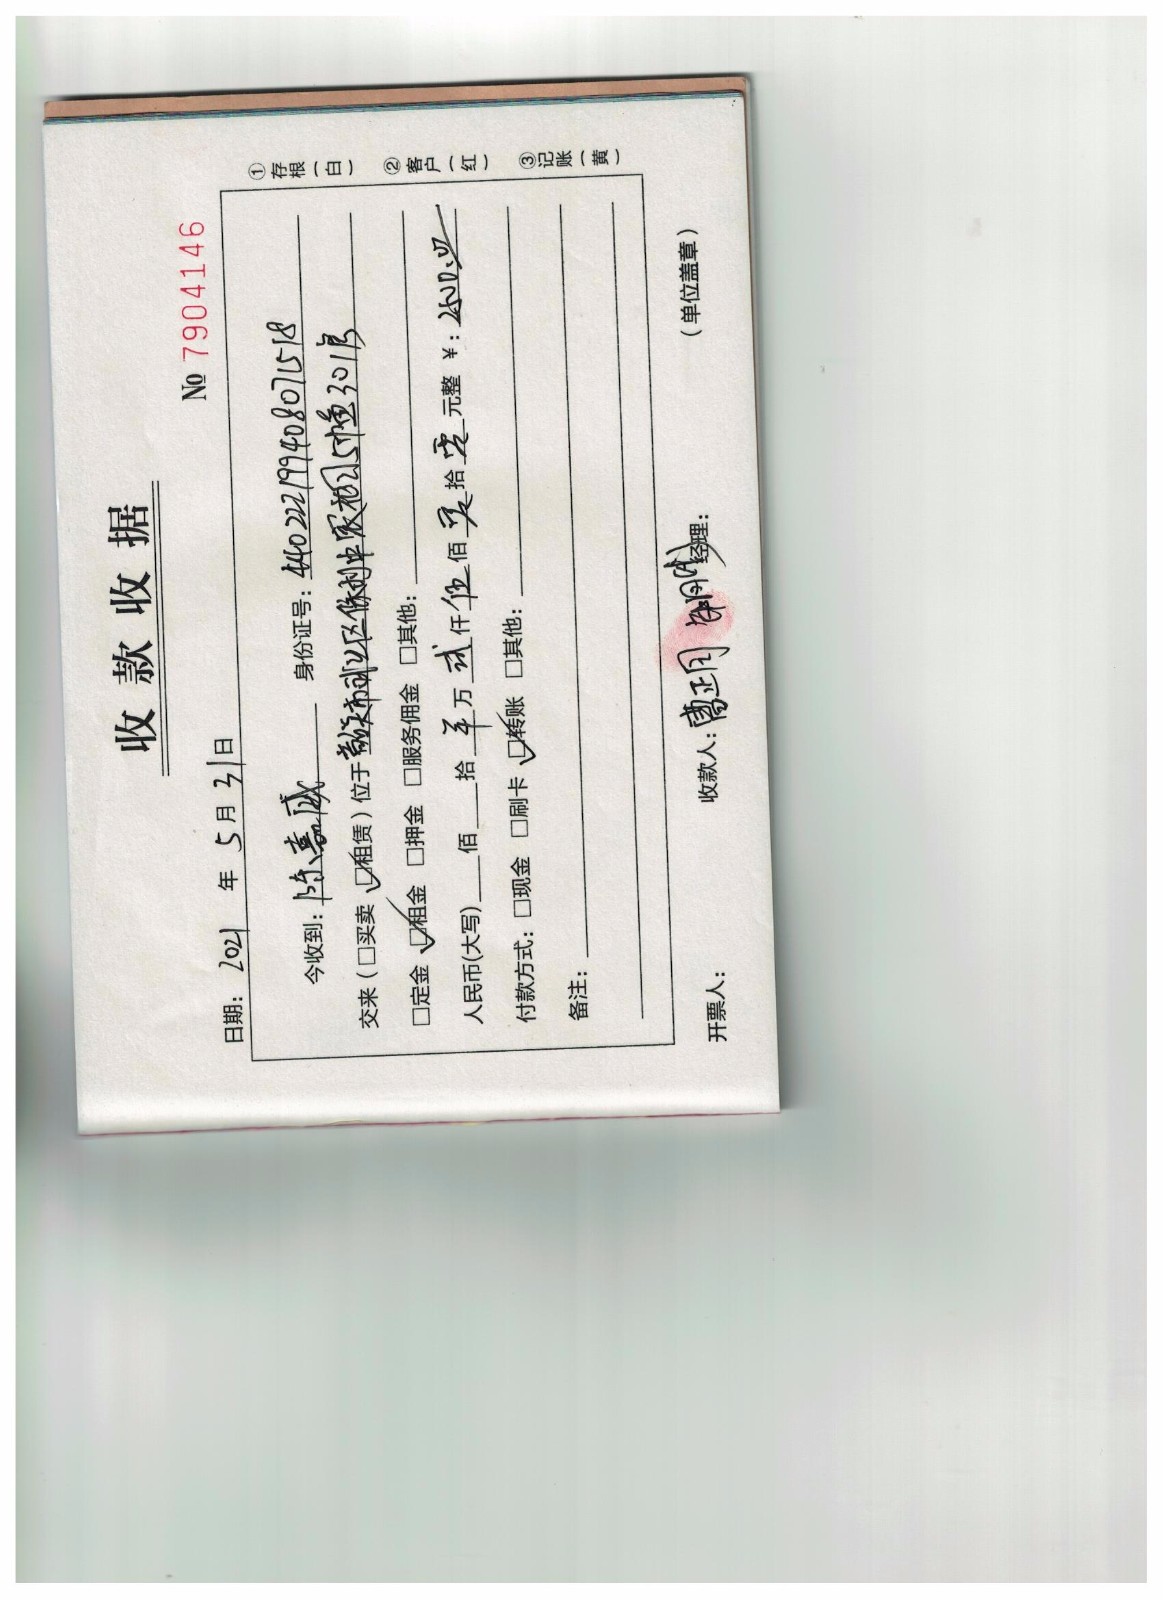 收款收据
№ 7904146
日期: 2021 年 5 月 31 日
今收到: 陈嘉威 身份证号: 440222199408071518
交来 (□买卖 ☑租赁) 位于 区保利中 301房
□定金 ☑租金 □押金 □服务佣金 □其他:
人民币(大写) 佰 拾 万 贰 仟 伍 佰 零 拾 零 元整 ¥: 2500.00
付款方式: □现金 □刷卡 ☑转账 □其他:
备注:
开票人: 收款人: 曹正国 经理: (单位盖章)
①存根(白) ②客户(红) ③记账(黄)